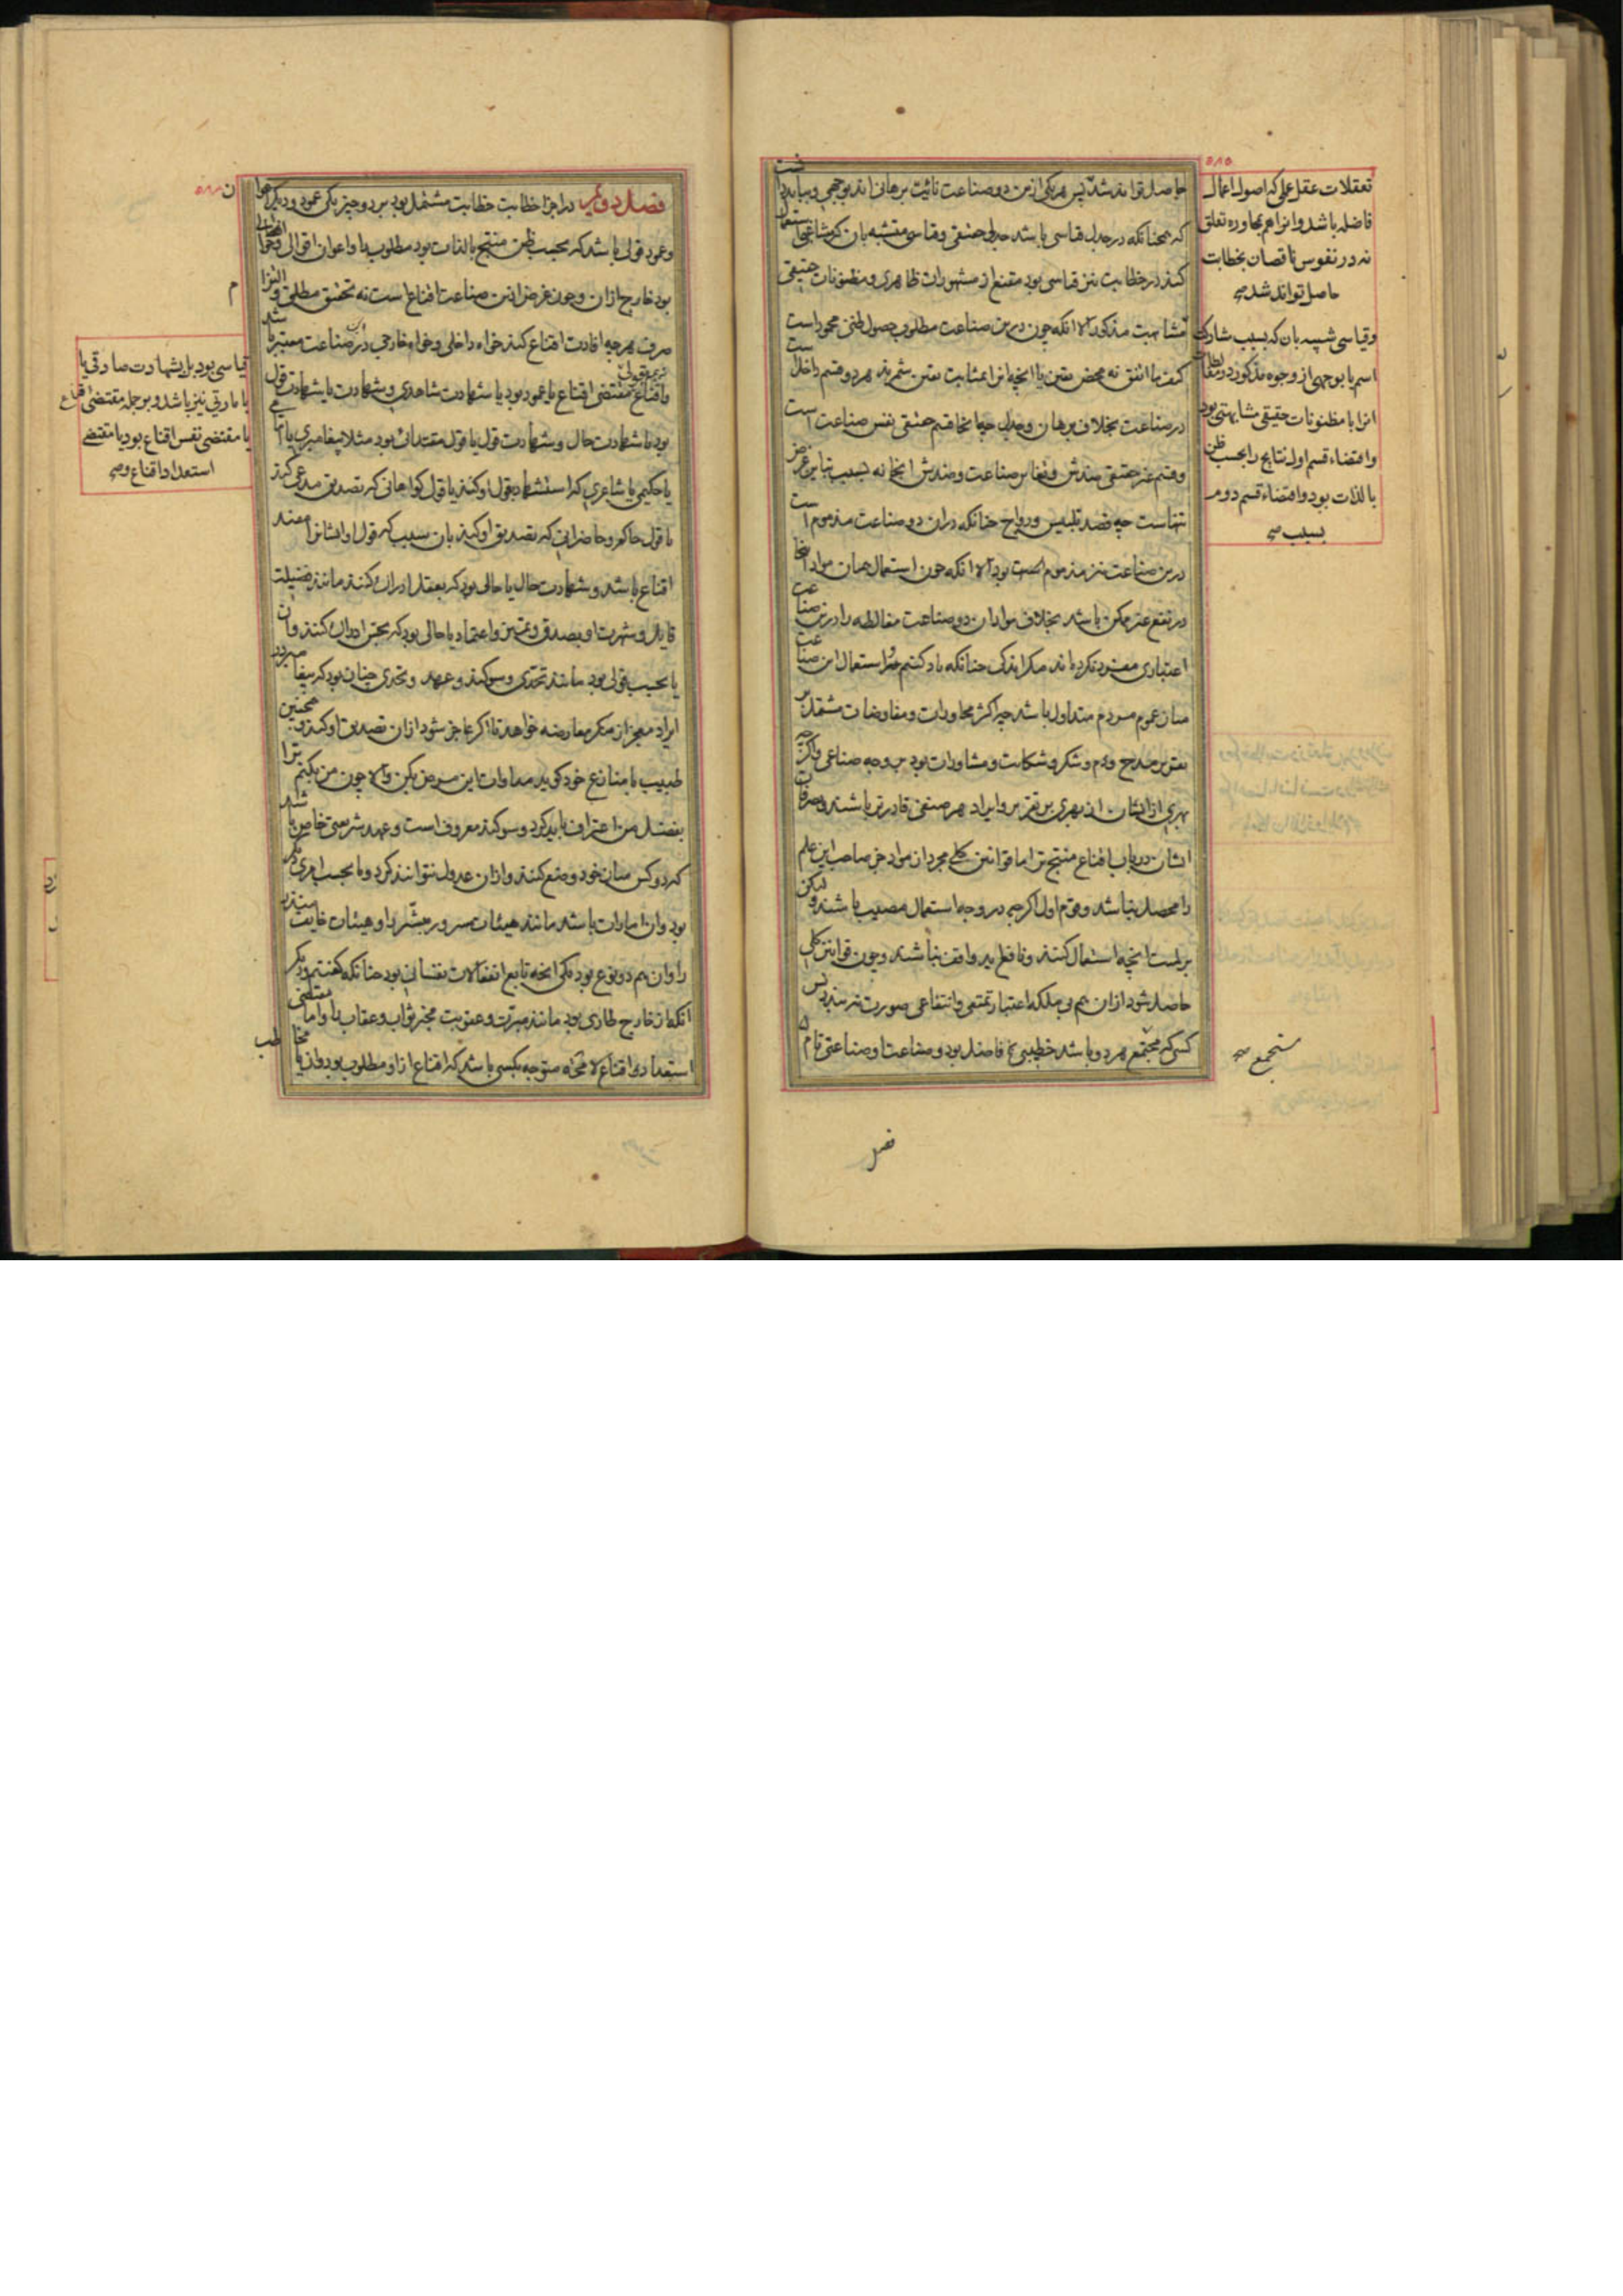 حاصل تواند شد پس هر یکی ازین دو صناعت نائبت برهانی اند بوجهی و بباید دانست
که همچنانکه در جدل قیاسی باشد جدلی حقیقی و قیاسی متشبه بان که مشاغبی استعمال
کند در خطابت نیز قیاسی بود مقنع از مشهورات ظاهری و مظنونات حقیقی
مشابهت مذکور الا انکه چون درین صناعت مطلوب حصول ظنی محمود است
کیف ما اتفق نه محض یقین یا انچه انرا بمثابت یقین شمرند هر دو قسم داخل است
در صناعت بخلاف برهان و جدل چه انجا قسم حقیقی نفس صناعت است
و قسم غیر حقیقی ضدش و تقابل صناعت و ضدش انجا نه بسبب تباین غرض
تنهاست چه قصد تلبیس و رواج چنانکه دران دو صناعت مذموم است
درین صناعت نیز مذموم بود الا انکه چون استعمال همان مواد انجا
در نفع غیر ممکن باشد بخلاف مواد ان دو صناعت مغالطه را درین صناعت
اعتباری مفرد نکرده اند مگر اندکی چنانکه یاد کنیم و استعمال این صناعت
میان عموم مردم متداول باشد چه اکثر محاورات و مفاوضات مشتمل بر
تقریر مدح و ذم و شکر و شکایت و مشاورات بود بر وجه صناعی و اگرچه
بهری ازایشان از بهری بر تقریر و ایراد هر صنفی قادرتر باشند و تصرفات
ایشان در باب اقناع منتج تر اما قوانین کلی مجرد از مواد جز صاحب این علم
را محصل نباشد و قوم اول اگرچه در وجه استعمال مصیب باشند و لیکن
بر لمیت انچه استعمال کنند و نافع اید واقف نباشند و چون قوانین کلی
حاصل شود ازان هم بی ملکه اعتبار تمتعی و انتفاعی صورت نبندد پس
کسی که مجتمع هر دو باشد خطیبی فاضل بود و صناعت او صناعتی تام
تعقلات عقل عملی که اصول اعمال
فاضله باشد و انرا هم بمحاوره تعلق
نه در نفوس ناقصان بخطابت
حاصل تواند شد صح
و قیاسی شبیه بان که بسبب مشارکت
اسم یا بوجهی از وجوه مذکور در مغالطات
انرا با مظنونات حقیقی مشابهتی بود
و اقتضاء قسم اول نتایج را بحسب ظن
بالذات بود و اقتضاء قسم دوم
بسبب صح
مستجمع صح
فصل
فصل دویم در اجزا خطابت خطابت مشتمل بود بر دو چیز یکی عمود و دیگر اعوان
و عمود قولی باشد که بحسب ظن منتج بالذات بود مطلوب را و اعوان اقوالی و احوالی
بود خارج ازان و چون غرض ازین صناعت اقناع است نه تحقیق مطلق و الزام
صرف هرچه افادت اقناع کند خواه داخلی و خواه خارجی درین صناعت معتبر باشد
و اقناع مقتضی اقناع یا عمود بود یا شهادت شاهدی و شهادت یا شهادت قول
بود یا شهادت حال و شهادت قول یا قول مقتدائی بود مثلا پیغامبری یا امامی
یا حکیمی یا شاعری که استشهاد بقول او کنند یا قول گواهانی که تصدیق مدعی کنند
یا قول حاکم و حاضرانی که تصدیق او کنند بان سبب که قول او ایشانرا مفید
اقناع باشد و شهادت حال یا حالی بود که بعقل ادراک کنند مانند فضیلت
قایل و شهرت او بصدق و تمییز و اعتماد یا حالی بود که بحس ادراک کنند و ان
یا بحسب قولی بود مانند تحدی و سوگند و عهد و تحدی چنان بود که پیغامبر در
ایراد معجز از منکر معارضه خواهد تا اگر عاجز شود ازان تصدیق او کند و همچنین
طبیب با منازع خود گوید مداوات این مریض بکن و الا چون من بکنم ترا
بفضل من اعتراف باید کرد و سوگند معروفست و عهد شریعتی خاص باشد
که دو کس میان خود وضع کنند و ازان عدول نتوانند کرد و یا بحسب امری دیگر
بود و ان امارات باشد مانند هیئات سرور مبشر را و هیئات خایف منذر
را و ان هم دو نوع بود یکی انچه تابع انفعالات نفسانی بود چنانکه گفتیم و دیگر
انکه از خارج طاری بود مانند مبرت و عقوبت مخبر ثواب و عقاب را و اما مقتضی
استعداد اقناع لا محاله متوجه بکسی باشد که اقناع ازو مطلوب بود و ان یا
مخاطب
قیاسی بود بل بشهادت صادقی یا
با مارقی نیز باشد و بر جمله مقتضی اقناع
یا مقتضی نفس اقناع بود یا مقتضی
استعداد اقناع و صح